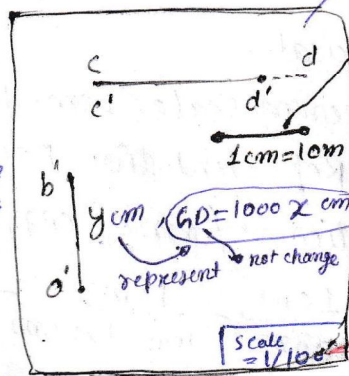 c d
c' d'
1cm=10m
b'
y cm, GD=1000 x cm
represent not change
o'
scale
=1/100